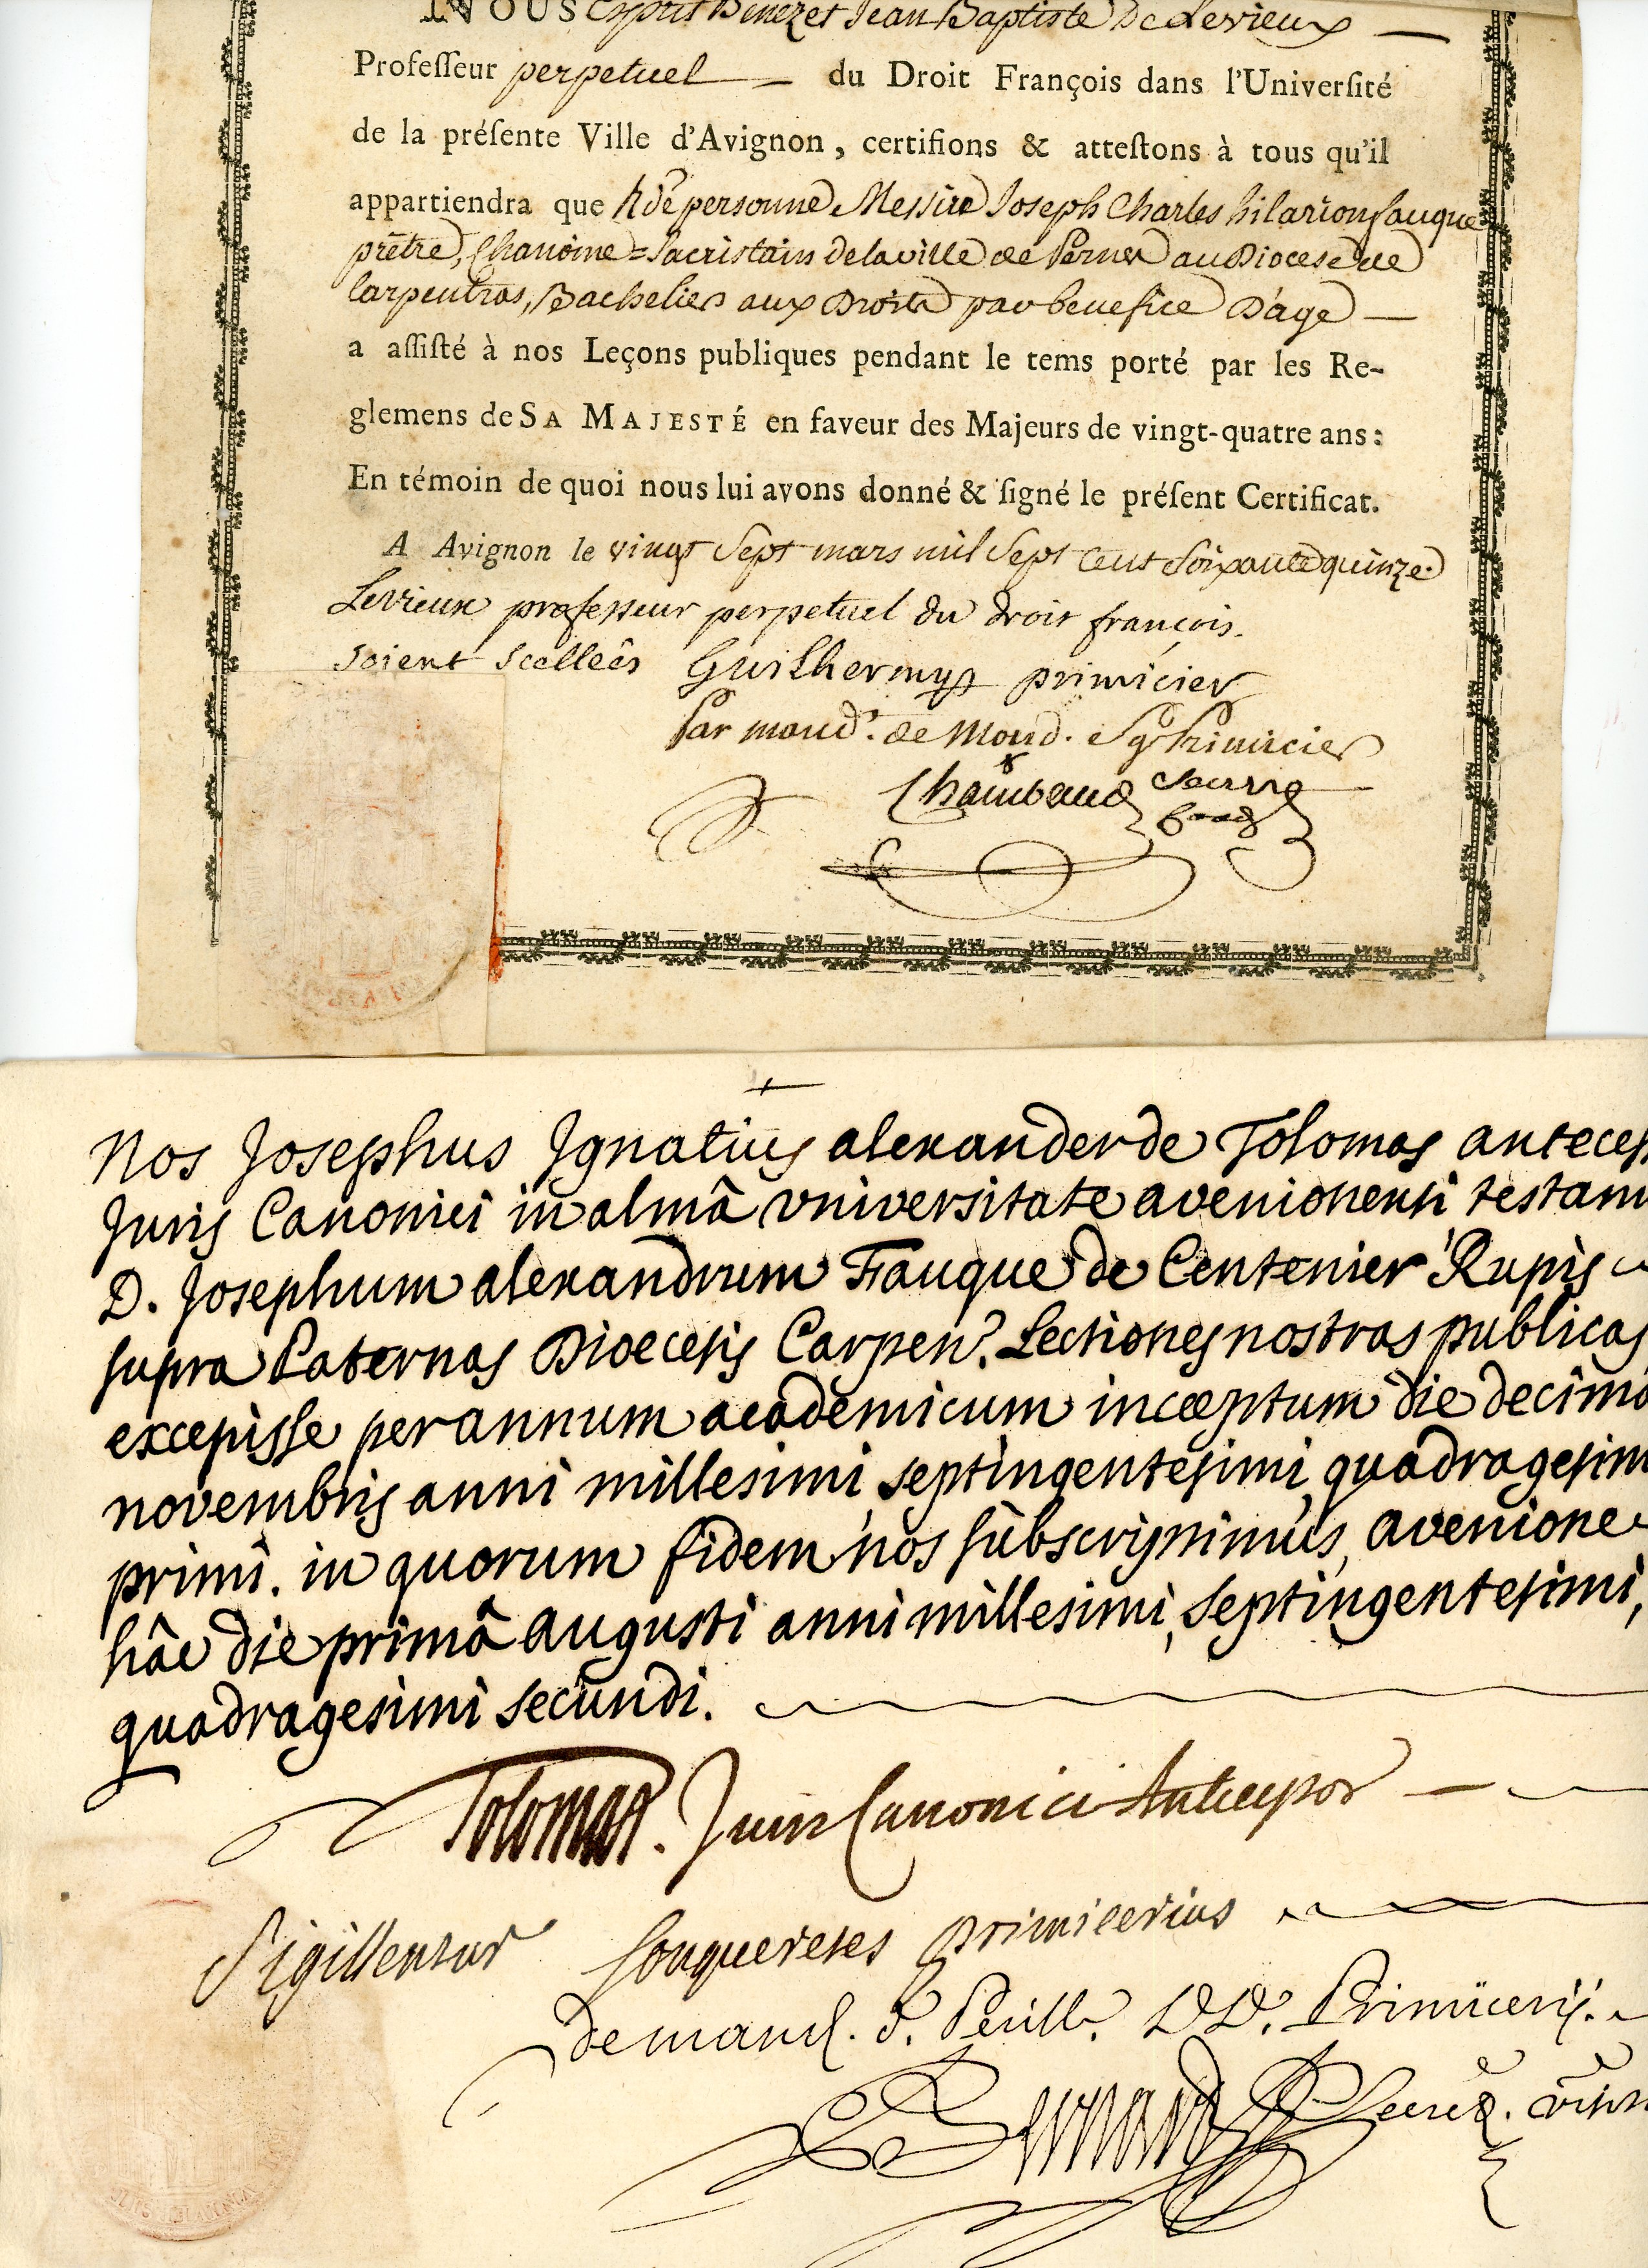 NOUS Esprit Benezet Jean Baptiste De Levieux
Profeſſeur perpetuel du Droit François dans l'Univerſité
de la préſente Ville d'Avignon, certifions & atteſtons à tous qu'il
appartiendra que Rde personne Messire Joseph Charles hilarion fauque
prêtre, Chanoine = Sacristain de la ville de Pernes au Diocese de
Carpentras, Bachelier aux Droits par benefice D'age
a aſſiſté à nos Leçons publiques pendant le tems porté par les Re-
glemens de SA MAJESTÉ en faveur des Majeurs de vingt-quatre ans:
En témoin de quoi nous lui avons donné & ſigné le préſent Certificat.
A Avignon le vingt Sept mars mil Sept Cent Soixante quinze.
Levieux professeur perpetuel du droit françois.
soient scellées Guilhermys primicier
Par mand.t de Mond. Sgr Primicier
Chambaud
Nos Josephus Ignatius alexander de Tolomas antecess
Juris Canonici in almâ vniversitate avenionensi testam
D. Josephum alexandrum Fauque de Centenier Rupis
supra Paternas Dioecesis Carpen. Lectiones nostras publicas
excepisse per annum academicum incoeptum die decimâ
novembris anni millesimi septingentesimi quadragesim
primi. in quorum fidem nos subscripsimus, avenione
hâc die primâ augusti anni millesimi, septingentesimi,
quadragesimi secundi.
Tolomas. Juris Canonici Antecessor
Sigillentur primicerius
De mand. P. Perill. DD. Primicerij.
Bernard Secret.